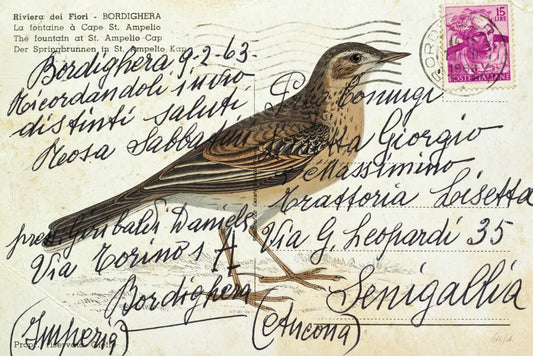 Riviera dei Fiori - BORDIGHERA
La fontaine à Cape St. Ampelio
The fountain at St. Ampelio Cap
Der Springbrunnen in St. Ampelio Kap
15
LIRE
POSTE ITALIANE
BORDIGHERA
Bordighera 9-2-63-
Ricordandoli invio
distinti saluti
Rosa Sabbadini
Coniugi
Giorgio
Massimino
Trattoria Lisetta
Via G. Leopardi 35
Senigallia
(Ancona)
Giribaldi Daniele
Via Torino 1 A
Bordighera
(Imperia)
Propr. riservata